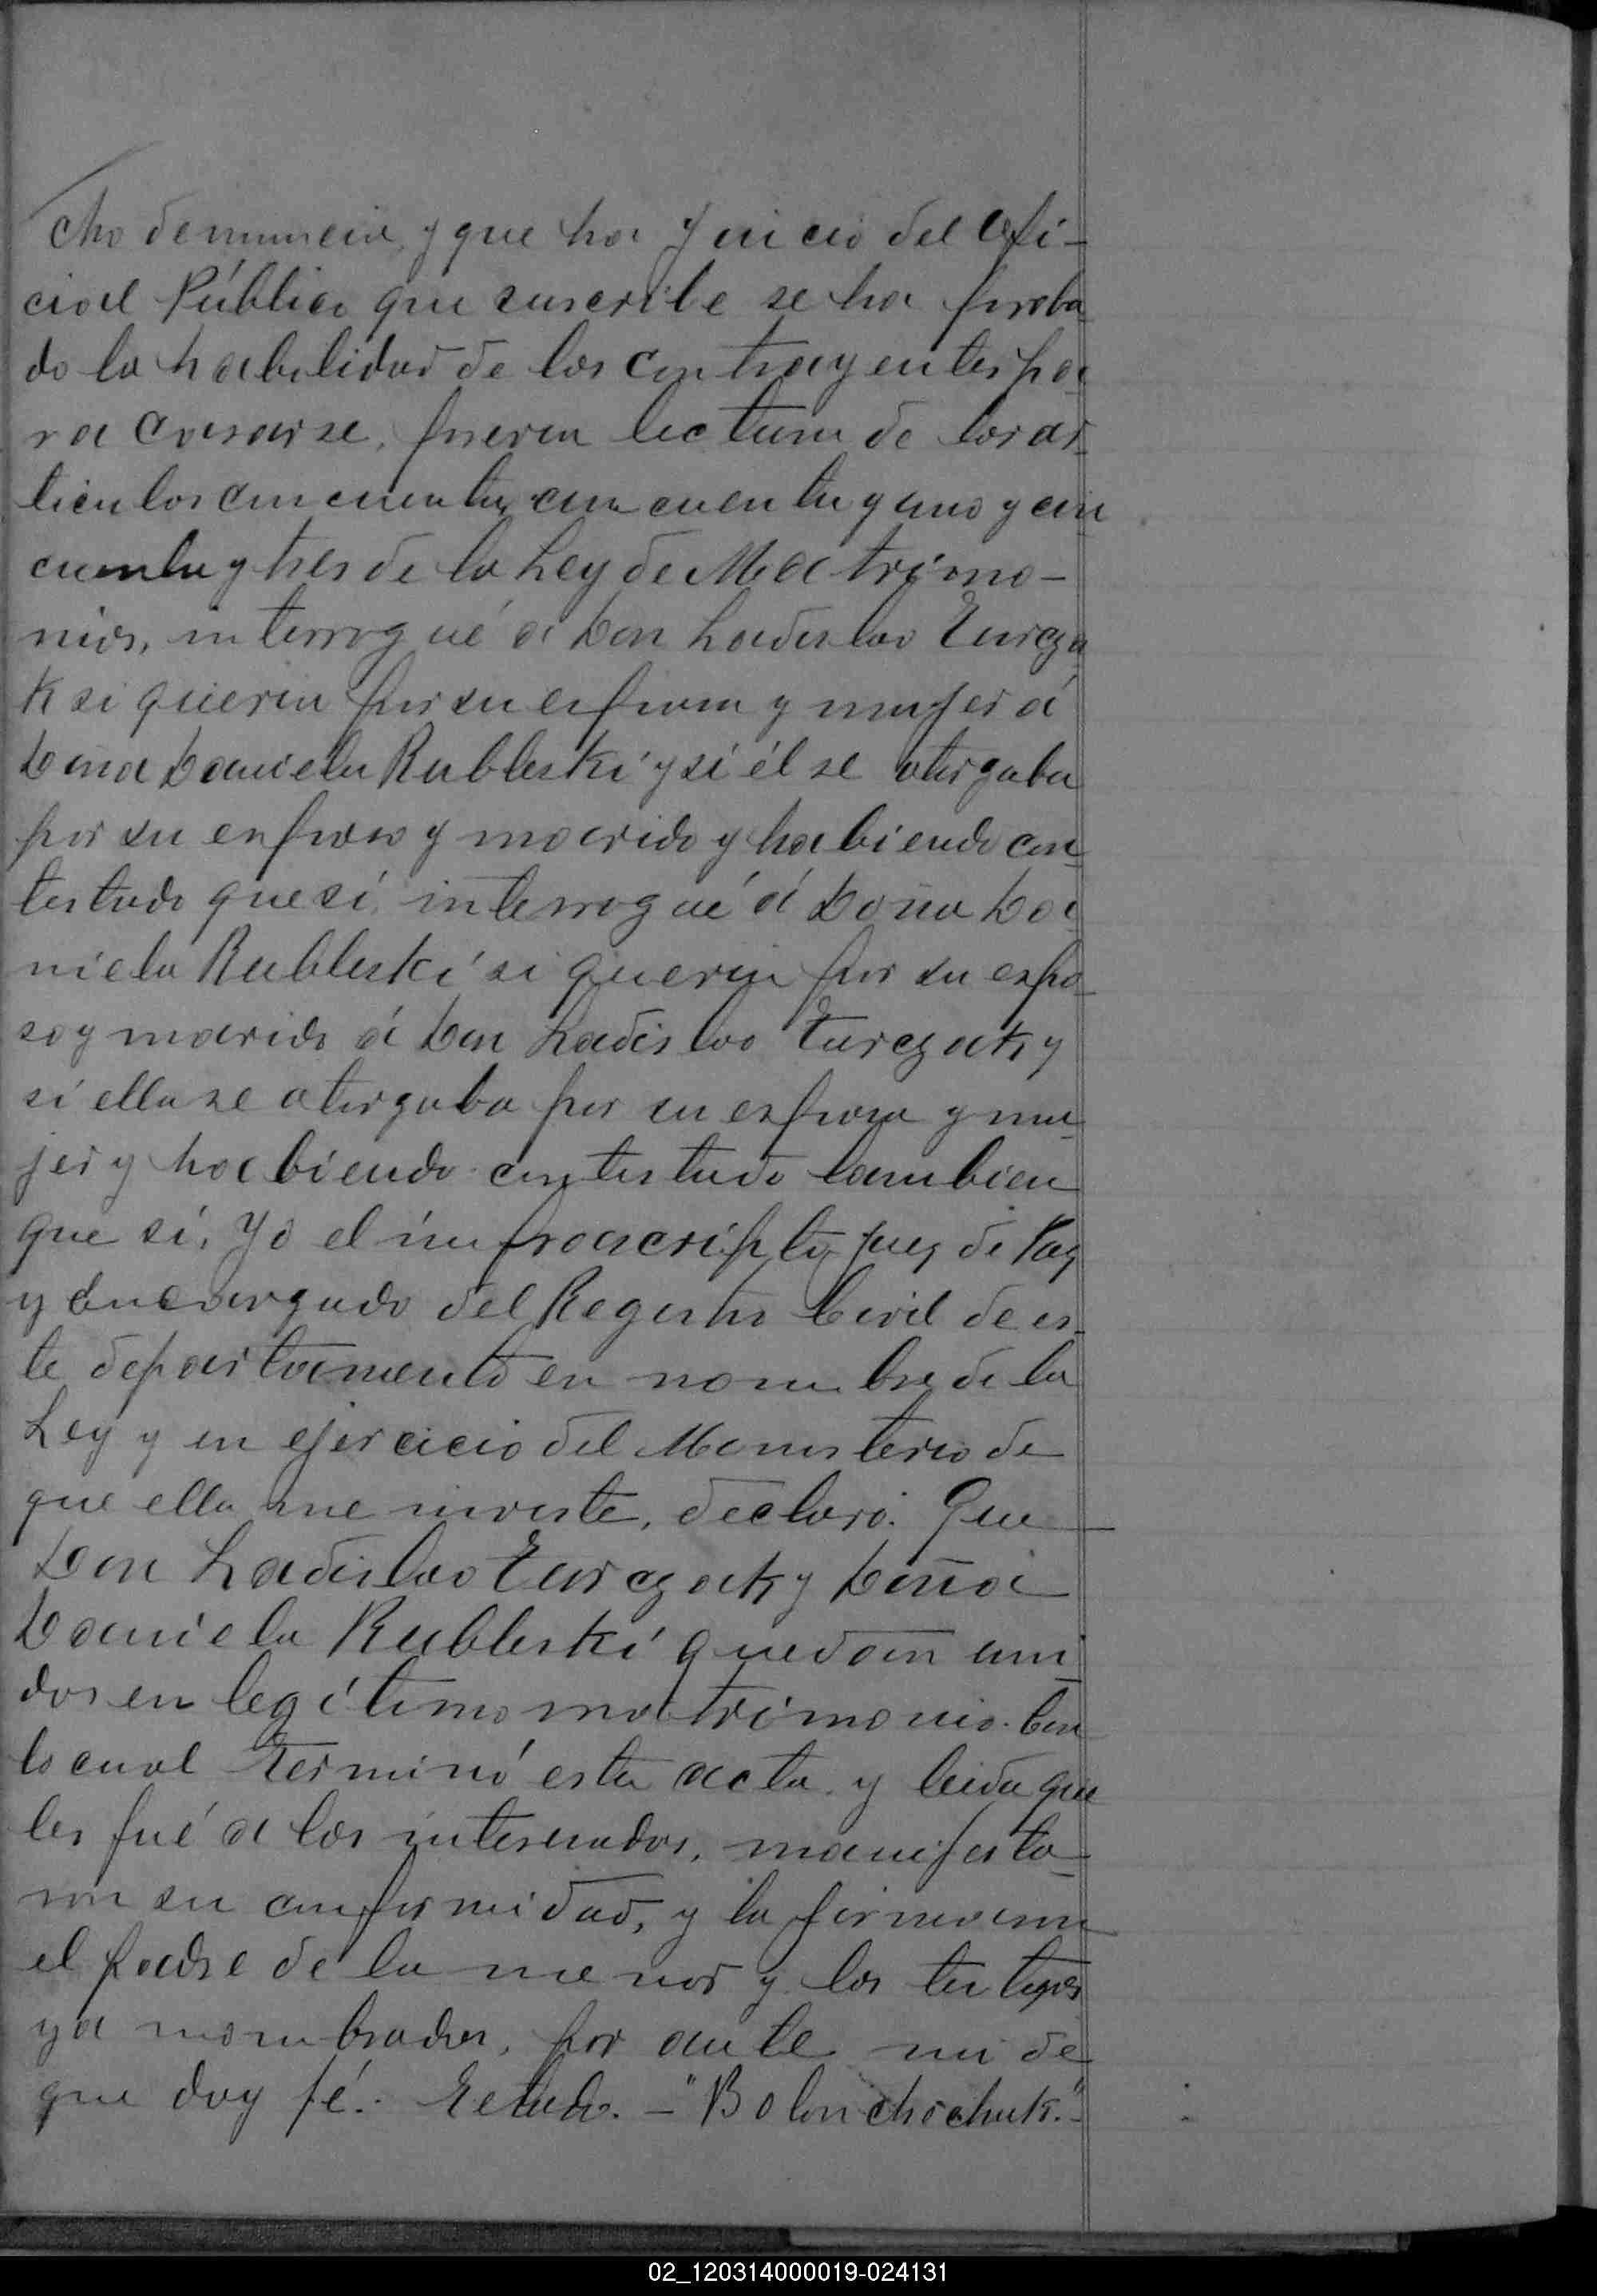 cho denuncia, y que ha Juicio del Ofi-
cial Público que suscribe se ha proba-
do la habilidad de los contrayentes pa-
ra casarse, previa lectura de los ar-
ticulos cincuenta, cincuenta y uno y cin
cuenta y tres de la Ley de Matrimo-
nios, interrogué a Don Ladislao Turcza
k si queria por su esposa y mujer á
Doña Daniela Rubleski y si él se otorgaba
por su esposo y marido y habiendo con-
testado que si, interrogué á Doña Da-
niela Rubleski si queria por su espo-
so y marido á Don Ladislao Turczak y
si ella se otorgaba por su esposa y mu-
jer y habiendo contestado tambien
que si, Yo el infrascripto Juez de Paz
y Encargado del Registro Civil de es-
te departamento en nombre de la
Ley y en ejercicio del Ministerio de
que ella me inviste, declaro: Que
Don Ladislao Turczak y Doña
Daniela Rubleski quedan uni-
dos en legítimo matrimonio. Con
lo cual terminó esta acta y leida que
les fué a los interesados, manifesta-
ron su conformidad, y la firmaron
el padre de la menor y los testigos
ya nombrados, por ante mi de
que doy fé.
02_120314000019-024131